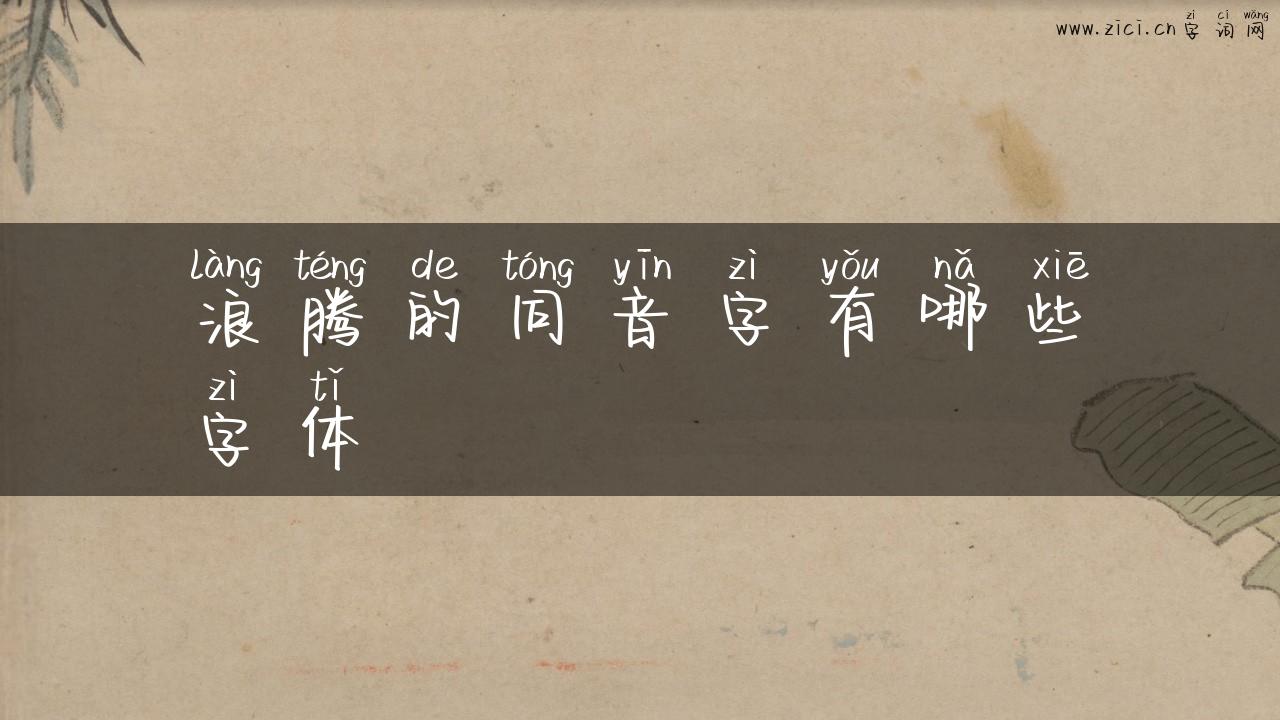 zì cí wǎng
www.zici.cn 字词网
làng téng de tóng yīn zì yǒu nǎ xiē
浪腾的同音字有哪些
zì tǐ
字体